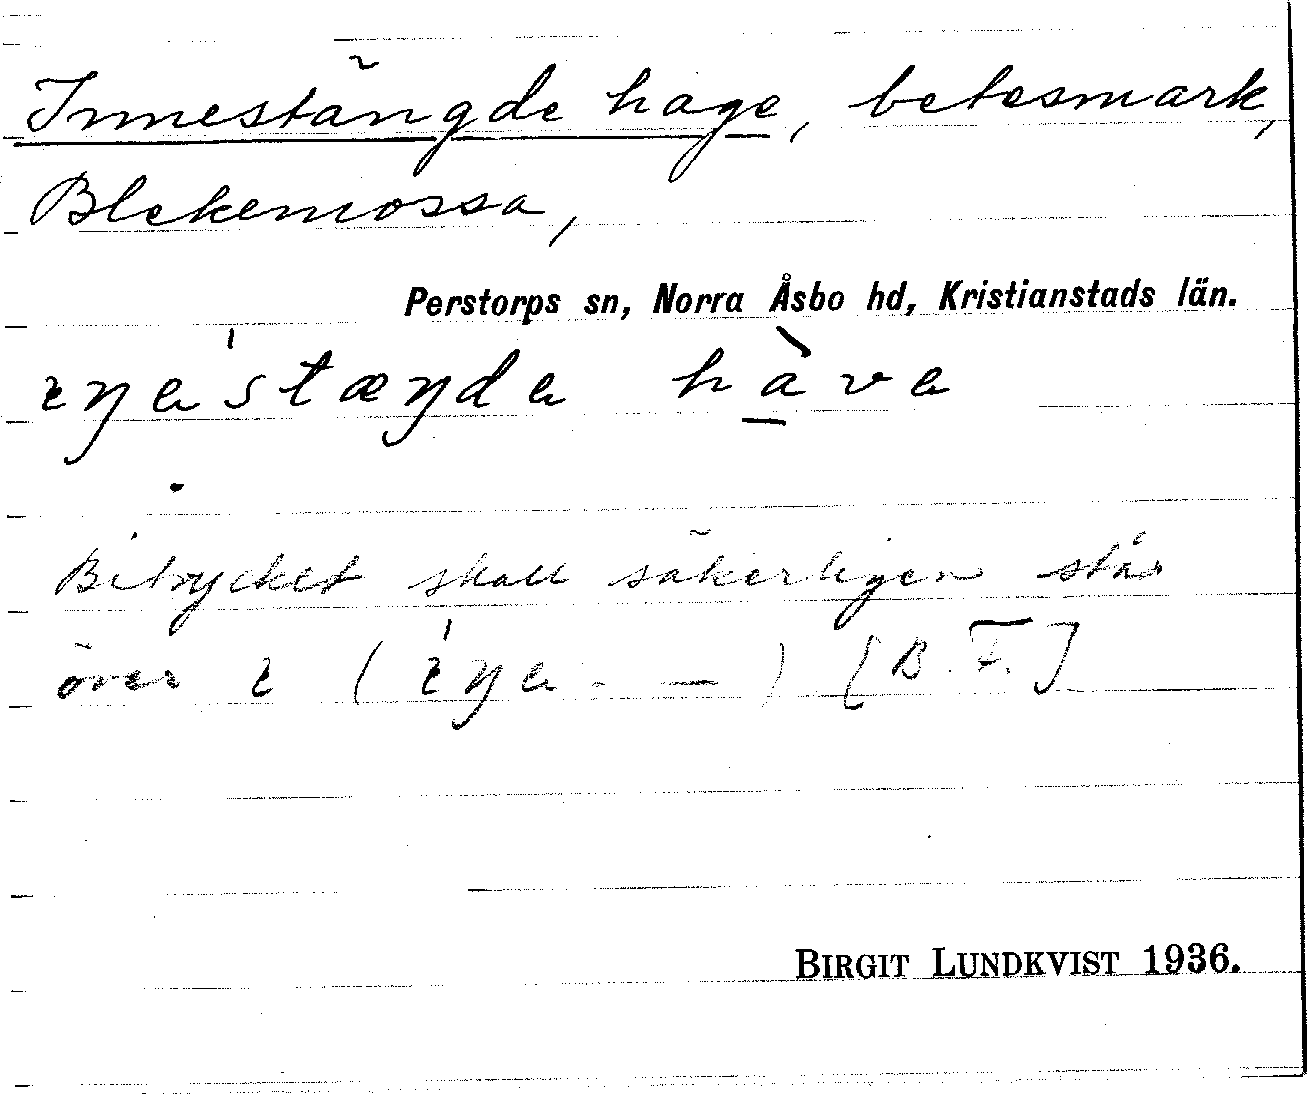 Innestängde hage, betesmark,
Blekemossa,
Perstorps sn, Norra Åsbo hd, Kristianstads län.
ıŋa'stæŋda hàva
Bitrycket skall säkerligen stå
över ı (ı'ŋa. —) [B. F.]
BIRGIT LUNDKVIST 1936.